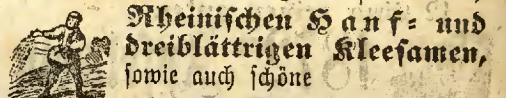 Rheinischen Hanf= und
dreiblättrigen Kleesamen,
sowie auch schöne